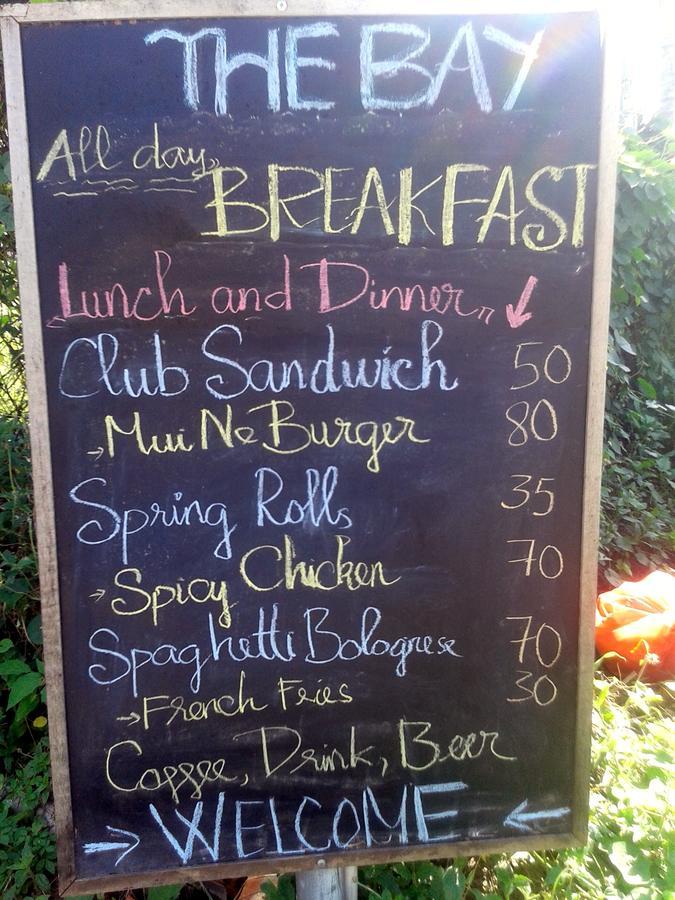 THE BAY
All day,
BREAKFAST
Lunch and Dinner,,
Club Sandwich 50
Mui Ne Burger 80
Spring Rolls 35
Spicy Chicken 70
Spaghetti Bolognese 70
French Fries 30
Coffee, Drink, Beer
WELCOME